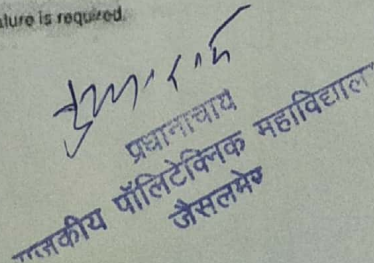 ature is required.
प्रधानाचार्य
राजकीय पॉलिटेक्निक महाविद्यालय
जैसलमेर